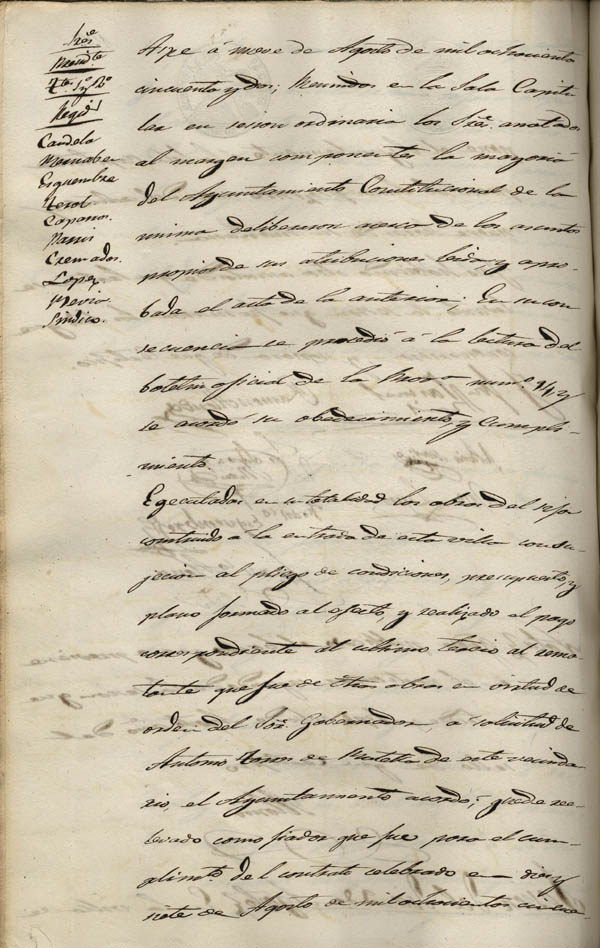 Sres.
Presidte.
Tte. 1º y 2º
Regid.s
Candela
Mas
Esquembre
Terol
Lopez
Previo
Sindico.
Aspe á nueve de Agosto de mil ochocientos
cincuenta y dos; Reunidos en la Sala Capitu
lar en sesion ordinaria los Sres. anotados
al margen componentes la mayoria
del Ayuntamiento Constitucional de la
misma deliberaron acerca de los asuntos
propios de sus atribuciones leida y apro-
bada el acta de la anterior; En su con
secuencia se procedió á la lectura del
boletin oficial de la Prova. numo. y
se acordó su obedecimiento y cumpli-
miento.
Egecutadas en su totalidad las obras del
construido á la entrada de esta villa con su-
jecion al pliego de condiciones, presupuesto, y
plano formado al efecto, y realizado el pago
correspondiente al ultimo tercio al rema-
tante que fue de dhas obras en virtud de
orden del Sor. Gobernador, á solicitud de
Antonio de este vecinda
rio, el Ayuntamiento acordó; quede re-
levado como fiador que fue para el cum-
plimto. del contrato celebrado en diez y
siete de Agosto de mil ochocientos cincuen-